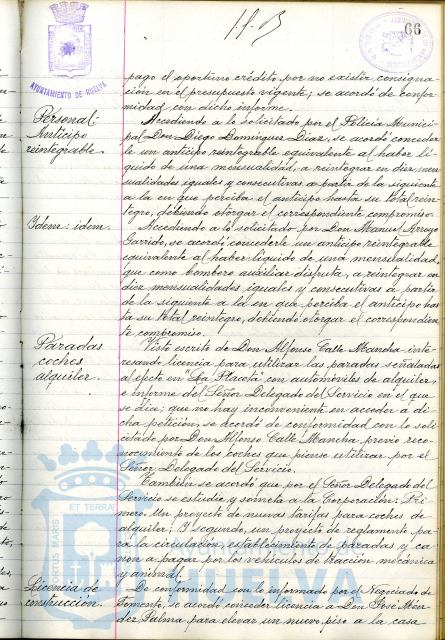 66
AYUNTAMIENTO DE HUELVA
pago el oportuno crédito por no existir consigna-
ción en el presupuesto vigente; se acordó de confor-
midad con dicho informe.
Personal:
Anticipo
reintegrable.
Accediendo a lo solicitado por el Policia Munici-
pal Don Diego Dominguez Diaz, se acordó conceder-
le un anticipo reintegrable equivalente al haber li-
quido de una mensualidad, a reintegrar en diez men-
sualidades iguales y consecutivas a partir de la siguiente
a la en que perciba el anticipo hasta su total rein-
tegro, debiendo otorgar el correspondiente compromiso.
Idem: idem.
Accediendo a lo solicitado por Don Manuel Arroyo
Garrido, se acordó concederle un anticipo reintegrable
equivalente al haber liquido de una mensualidad,
que como bombero auxiliar disfruta, a reintegrar en
diez mensualidades iguales y consecutivas a partir
de la siguiente a la en que perciba el anticipo has-
ta su total reintegro, debiendo otorgar el correspondien-
te compromiso.
Paradas
coches
alquiler.
Visto escrito de Don Alfonso Calle Mancha inte-
resando licencia para utilizar las paradas señaladas
al efecto en "La Placeta" con automóviles de alquiler
e informe del Señor Delegado del Servicio en el que
se dice: que no hay inconveniente en acceder a di-
cha petición, se acordó de conformidad con lo soli-
citado por Don Alfonso Calle Mancha previo reco-
nocimiento de los coches que piense utilizar por el
Señor Delegado del Servicio.
También se acordó que por el Señor Delegado del
Servicio se estudie y someta a la Corporación: Pri-
mero. Un proyecto de nuevas tarifas para coches de
alquiler; y segundo, un proyecto de reglamento pa-
ra la circulación, establecimiento de paradas y ca-
non a pagar por los vehiculos de tracción mecánica
y animal.
Licencia de
construcción.
De conformidad con lo informado por el Negociado de
Fomento, se acordó conceder licencia a Don José Men-
dez Palma para elevar un nuevo piso a la casa
ET TERRA
PORTUS MARIS
HUELVA